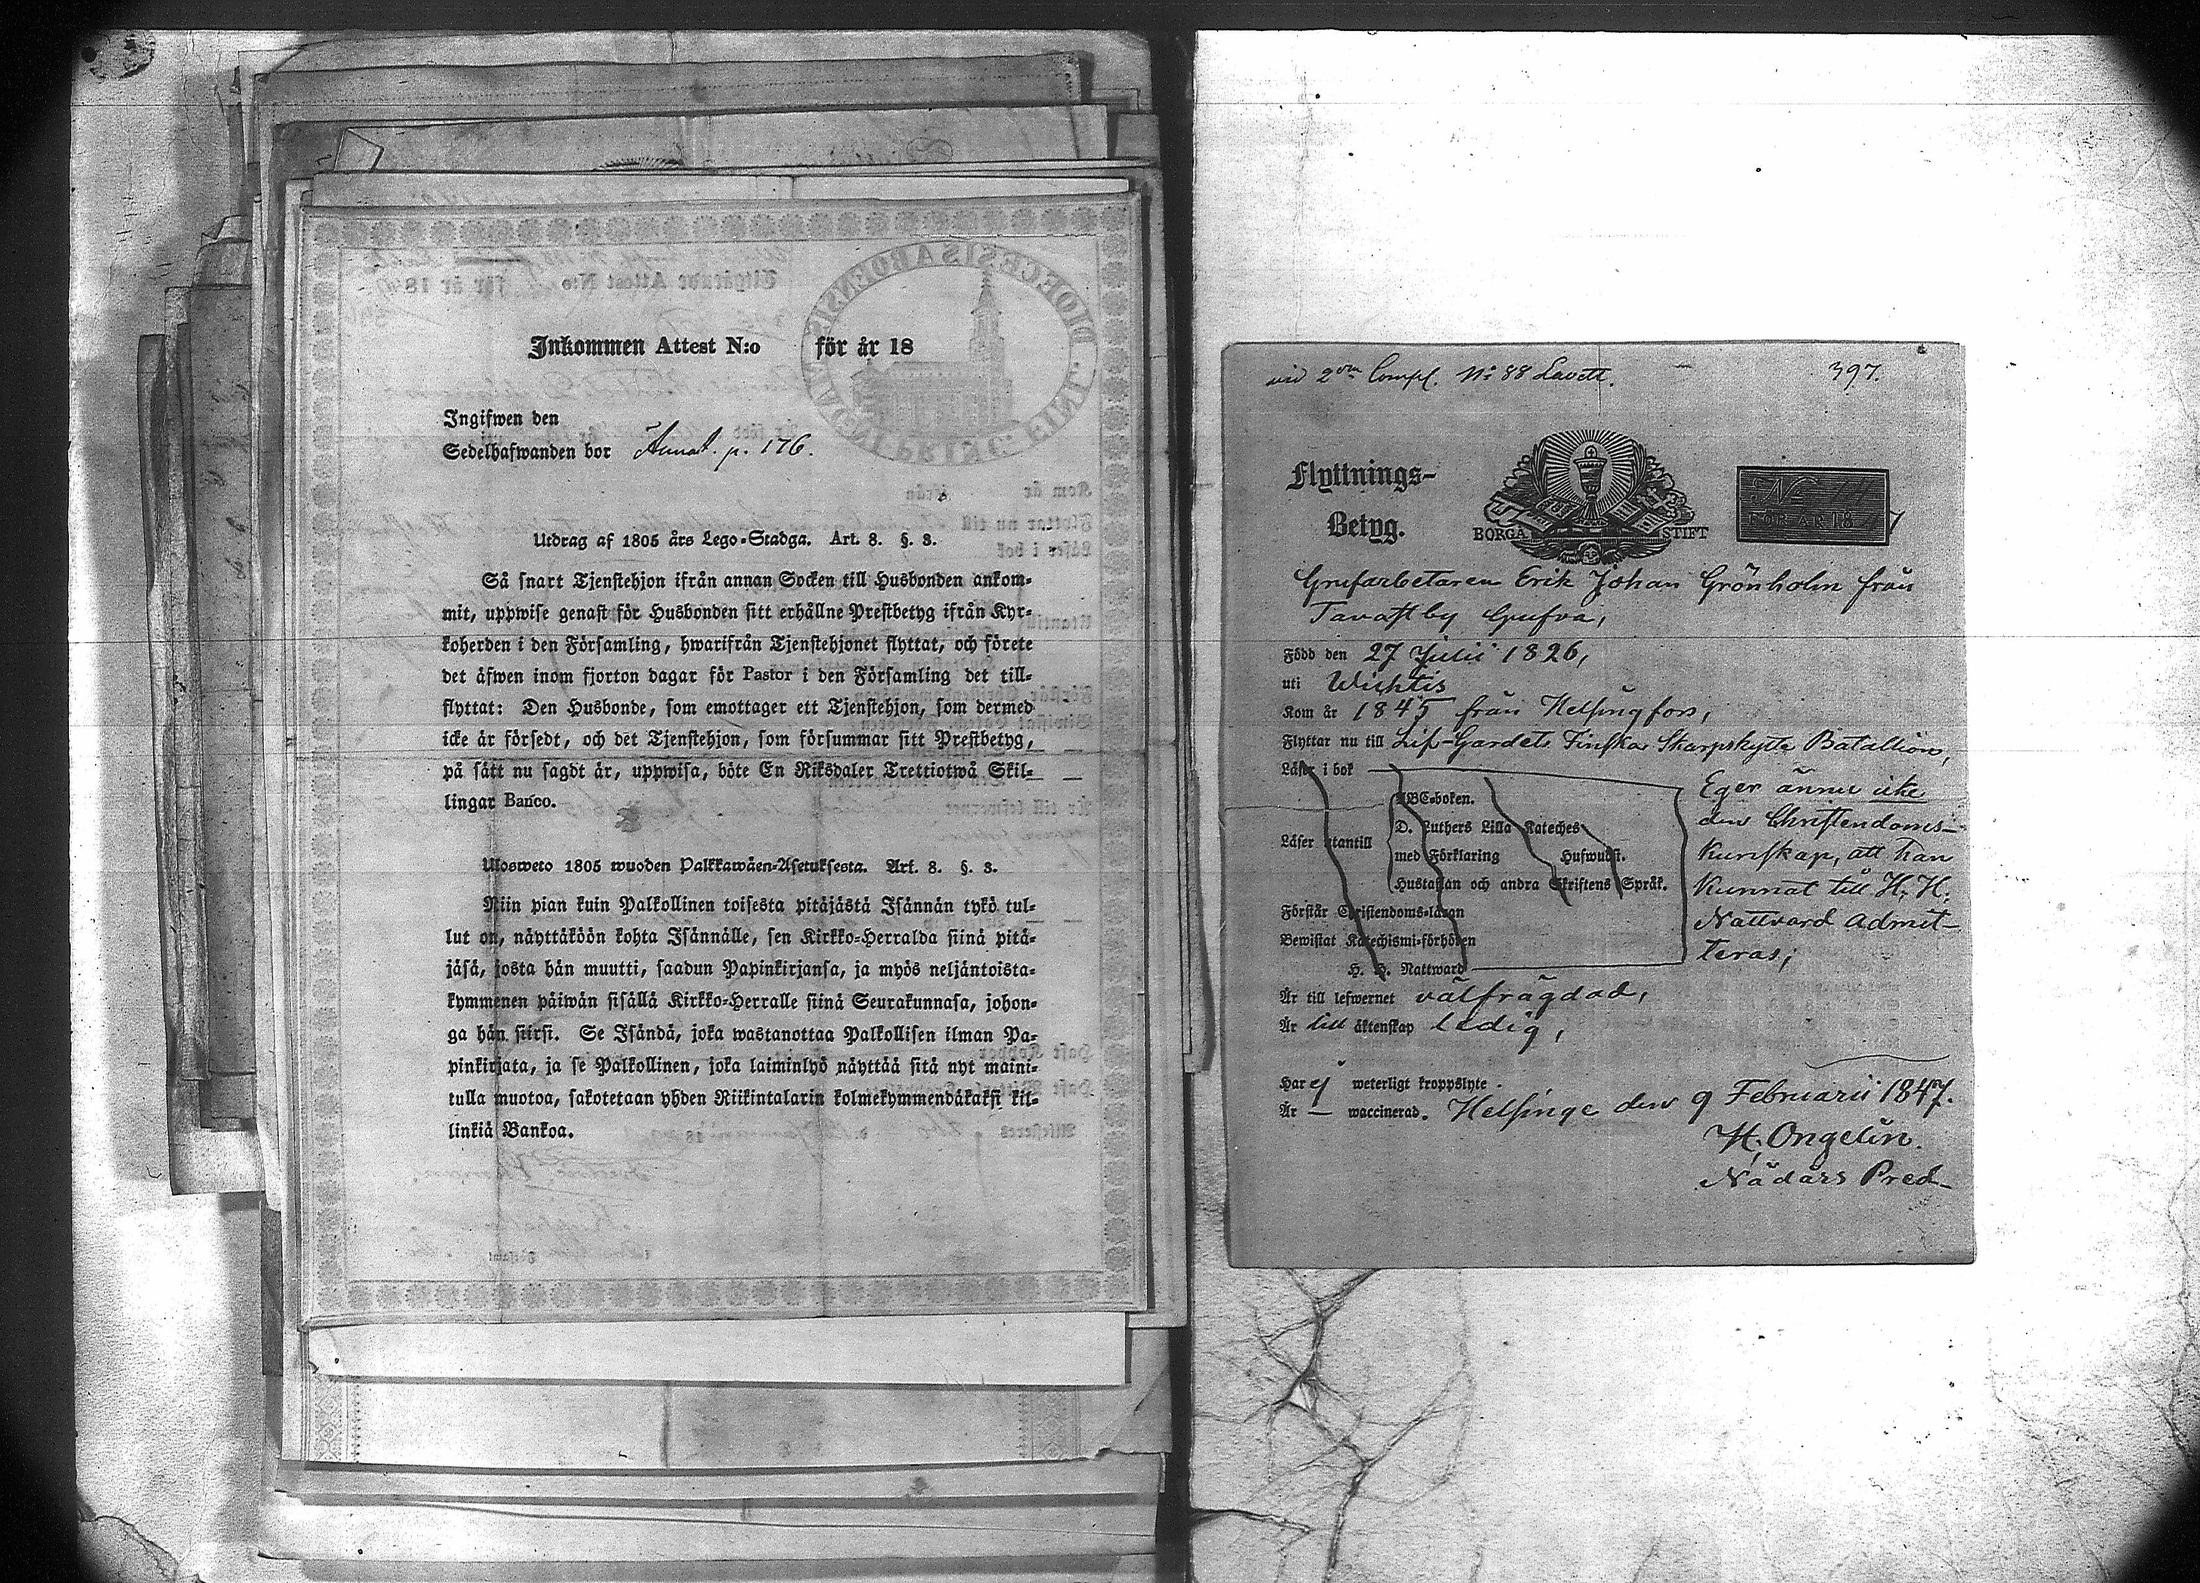 Inkommen Attest N:o för år 18
Ingifwen den
Sedelhafwanden bor Annat. p. 176.
Utdrag af 1805 års Lego-Stadga. Art. 8. §. 3.
Så snart Tjenstehjon ifrån annan Socken till Husbonden ankom-
mit, uppwise genast för Husbonden sitt erhållne Prestbetyg ifrån Kyr-
koherden i den Församling, hwarifrån Tjenstehjonet flyttat, och förete
det äfwen inom fjorton dagar för Pastor i den Församling det till-
flyttat: Den Husbonde, som emottager ett Tjenstehjon, som dermed
icke är försedt, och det Tjenstehjon, som försummar sitt Prestbetyg,
på sätt nu sagdt är, uppwisa, böte En Riksdaler Trettiotwå Skil-
lingar Banco.
Ulosweto 1805 wuoden Palkkawäen-Asetuksesta. Art. 8. §. 3.
Niin pian kuin Palkollinen toisesta pitäjästä Isännän tykö tul-
lut on, näyttäköön kohta Isännälle, sen Kirkko-Herralda siinä pitä-
jäsä, josta hän muutti, saadun Papinkirjansa, ja myös neljäntoista-
kymmenen päiwän sisällä Kirkko-Herralle siinä Seurakunnasa, johon-
ga hän siirsi. Se Isändä, joka wastanottaa Palkollisen ilman Pa-
pinkirjata, ja se Palkollinen, joka laiminlyö näyttää sitä nyt maini-
tulla muotoa, sakotetaan yhden Riikintalarin kolmekymmendäkaksi kil-
linkiä Bankoa.
vid 2dra Compl. No 88 Lavett. 397.
Flyttnings-
Betyg.
BORGÅ STIFT
No
FÖR ÅR 18 7
Grufarbetaren Erik Johan Grönholm från
Tavastby Grufva,
Född den 27 Julii 1826,
uti Wichtis
Kom år 1845 från Helsingfors,
Flyttar nu till Lif-Gardets Finska Skarpskytte Batallion,
Läser i bok
ABC-boken.
D. Luthers Lilla Kateches
Läser utantill
med Förklaring Hufwudst.
Hustaflan och andra Skriftens Språk.
Förstår Christendoms-läran
Bewistat Katechismi-förhören
H. H. Nattward
Eger ännu icke
den Christendoms-
kunskap, att han
kunnat till H. H.
Nattvard admit-
teras;
Är till lefwernet välfrägdad,
Är till äktenskap ledig,
Har ej weterligt kroppslyte.
Är — waccinerad. Helsinge den 9 Februarii 1847.
H. Ongelin.
Nådårs Pred-